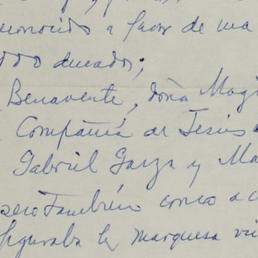 conocido a favor de una
ducados;
Benavente, doña Mag
Compañía de Jesús
Gabriel Garza y Ma
pero también como a c
figuraba la marquesa vi